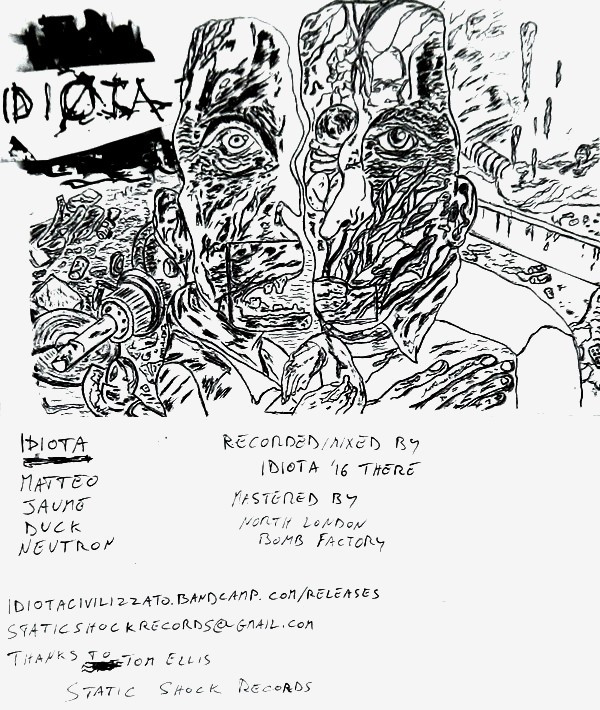 IDIOTA
IDIOTA
MATTEO
JAUME
DUCK
NEUTRON
RECORDED/MIXED BY
IDIOTA '16 THERE
MASTERED BY
NORTH LONDON
BOMB FACTORY
IDIOTACIVILIZZATO.BANDCAMP.COM/RELEASES
STATICSHOCKRECORDS@GMAIL.COM
THANKS TO TOM ELLIS
STATIC SHOCK RECORDS